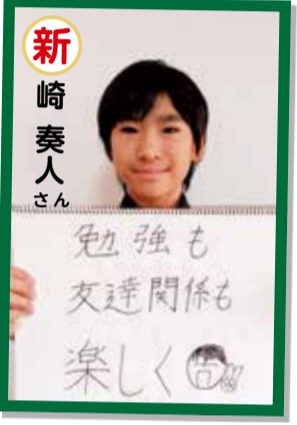 新
崎奏人
さん
勉強も
友達関係も
楽しく